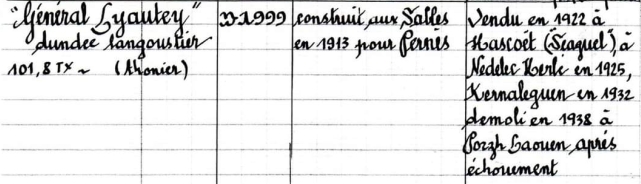 "Général Lyautey"
dundee langoustier
101,8 TX ~ (thonier)
D-1999
construit aux Sables
en 1913 pour Pernès
Vendu en 1922 à
Hascoët ("Seaguel"), à
Nedelec Herlé en 1925,
Kernaleguen en 1932
demoli en 1938 à
Porzh Laouen, après
échouement